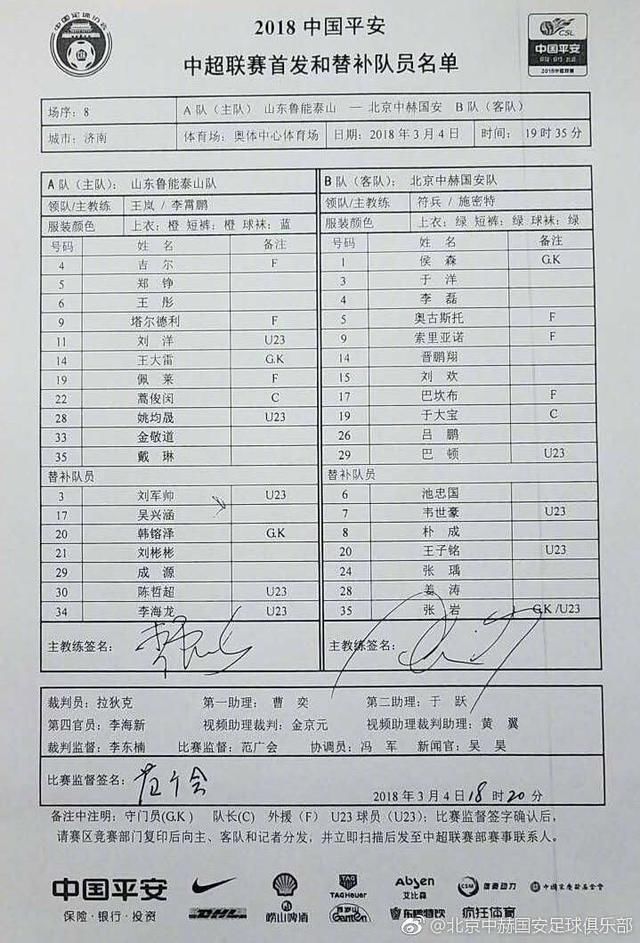 中国足球协会
2018 中国平安
中超联赛首发和替补队员名单
CSL
中国平安
保险·银行·投资
2018中超联赛
场序：8 A 队（主队） 山东鲁能泰山 — 北京中赫国安 B 队（客队）
城市：济南 体育场：奥体中心体育场 日期：2018 年 3 月 4 日 时间： 19 时 35 分
A 队（主队）： 山东鲁能泰山队
领队/主教练 王岚 / 李霄鹏
服装颜色 上衣：橙 短裤：橙 球袜：蓝
号码 姓 名 备注
4 吉尔 F
5 郑 铮
6 王 彤
9 塔尔德利 F
11 刘 洋 U23
14 王大雷 G.K
19 佩 莱 F
22 蒿俊闵 C
28 姚均晟 U23
33 金敬道
35 戴 琳
替补队员
3 刘军帅 U23
17 吴兴涵
20 韩镕泽 G.K
21 刘彬彬
29 成 源
30 陈哲超 U23
34 李海龙 U23
主教练签名：
B 队（客队）： 北京中赫国安队
领队/主教练 符兵 / 施密特
服装颜色 上衣：绿 短裤：绿 球袜：绿
号码 姓 名 备注
1 侯 森 G.K
3 于 洋
4 李 磊
5 奥古斯托 F
9 索里亚诺 F
14 晋鹏翔
15 刘 欢
17 巴坎布 F
19 于大宝 C
26 吕 鹏
29 巴 顿 U23
替补队员
6 池忠国
7 韦世豪 U23
8 朴 成
20 王子铭 U23
24 张 瑀
28 姜 涛
35 张 岩 G.K /U23
主教练签名：
裁判员：拉狄克 第一助理： 曹 奕 第二助理：于 跃
第四官员：李海新 视频助理裁判：金京元 视频助理裁判助理：黄 翼
裁判监督：李东楠 比赛监督：范广会 协调员：冯 军 新闻官：吴 昊
比赛监督签名： 范广会
2018 年 3 月 4 日 18 时 20 分
备注中注明：守门员(G.K ) 队长(C) 外援（F） U23 球员（U23）；比赛监督签字确认后，
请赛区竞赛部门复印后向主、客队和记者分发，并立即扫描后发至中超联赛部赛事联系人。
中国平安
保险·银行·投资
DHL
崂山啤酒
TAG
TAGHeuer
Absen
艾比森
CSM
体奥动力
疯狂体育
@北京中赫国安足球俱乐部